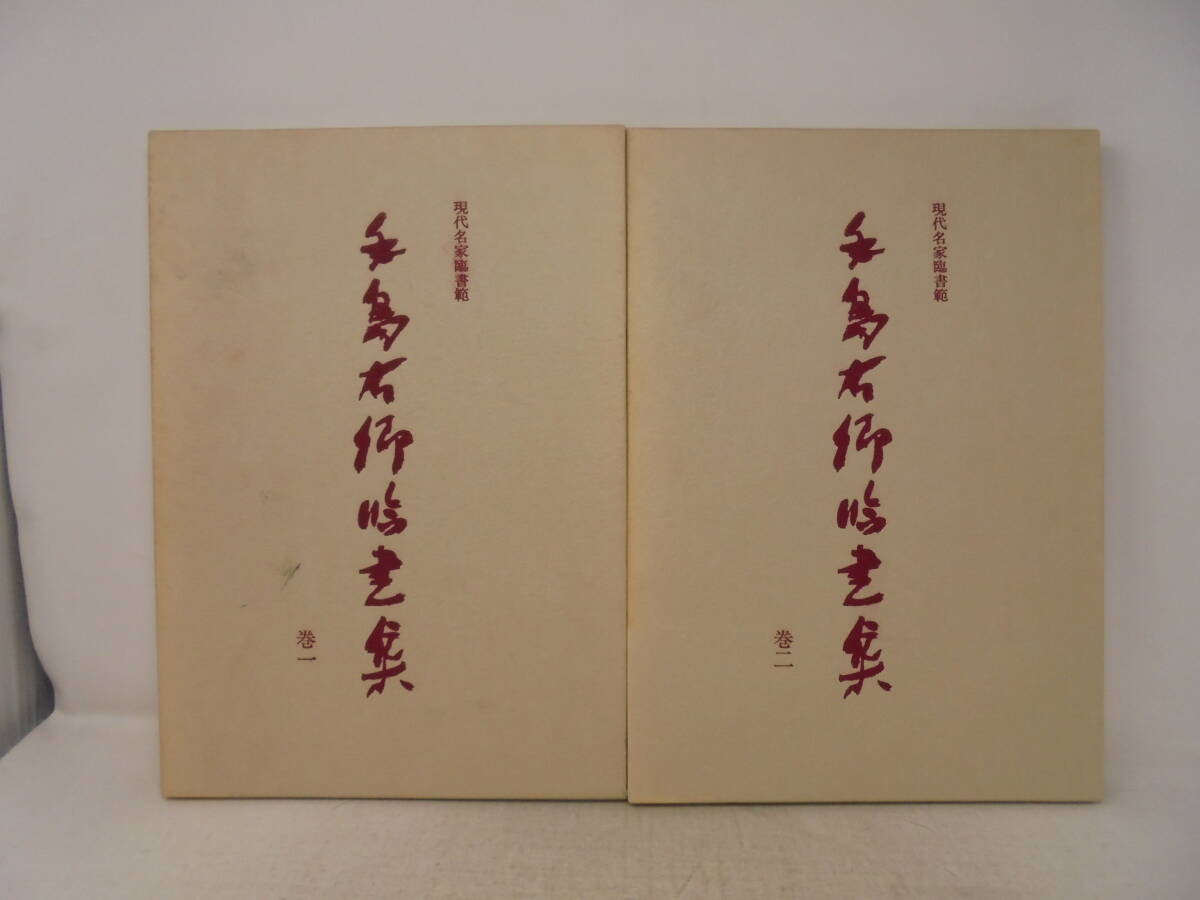 現代名家臨書範
手島右卿臨書集
巻一
現代名家臨書範
手島右卿臨書集
巻二